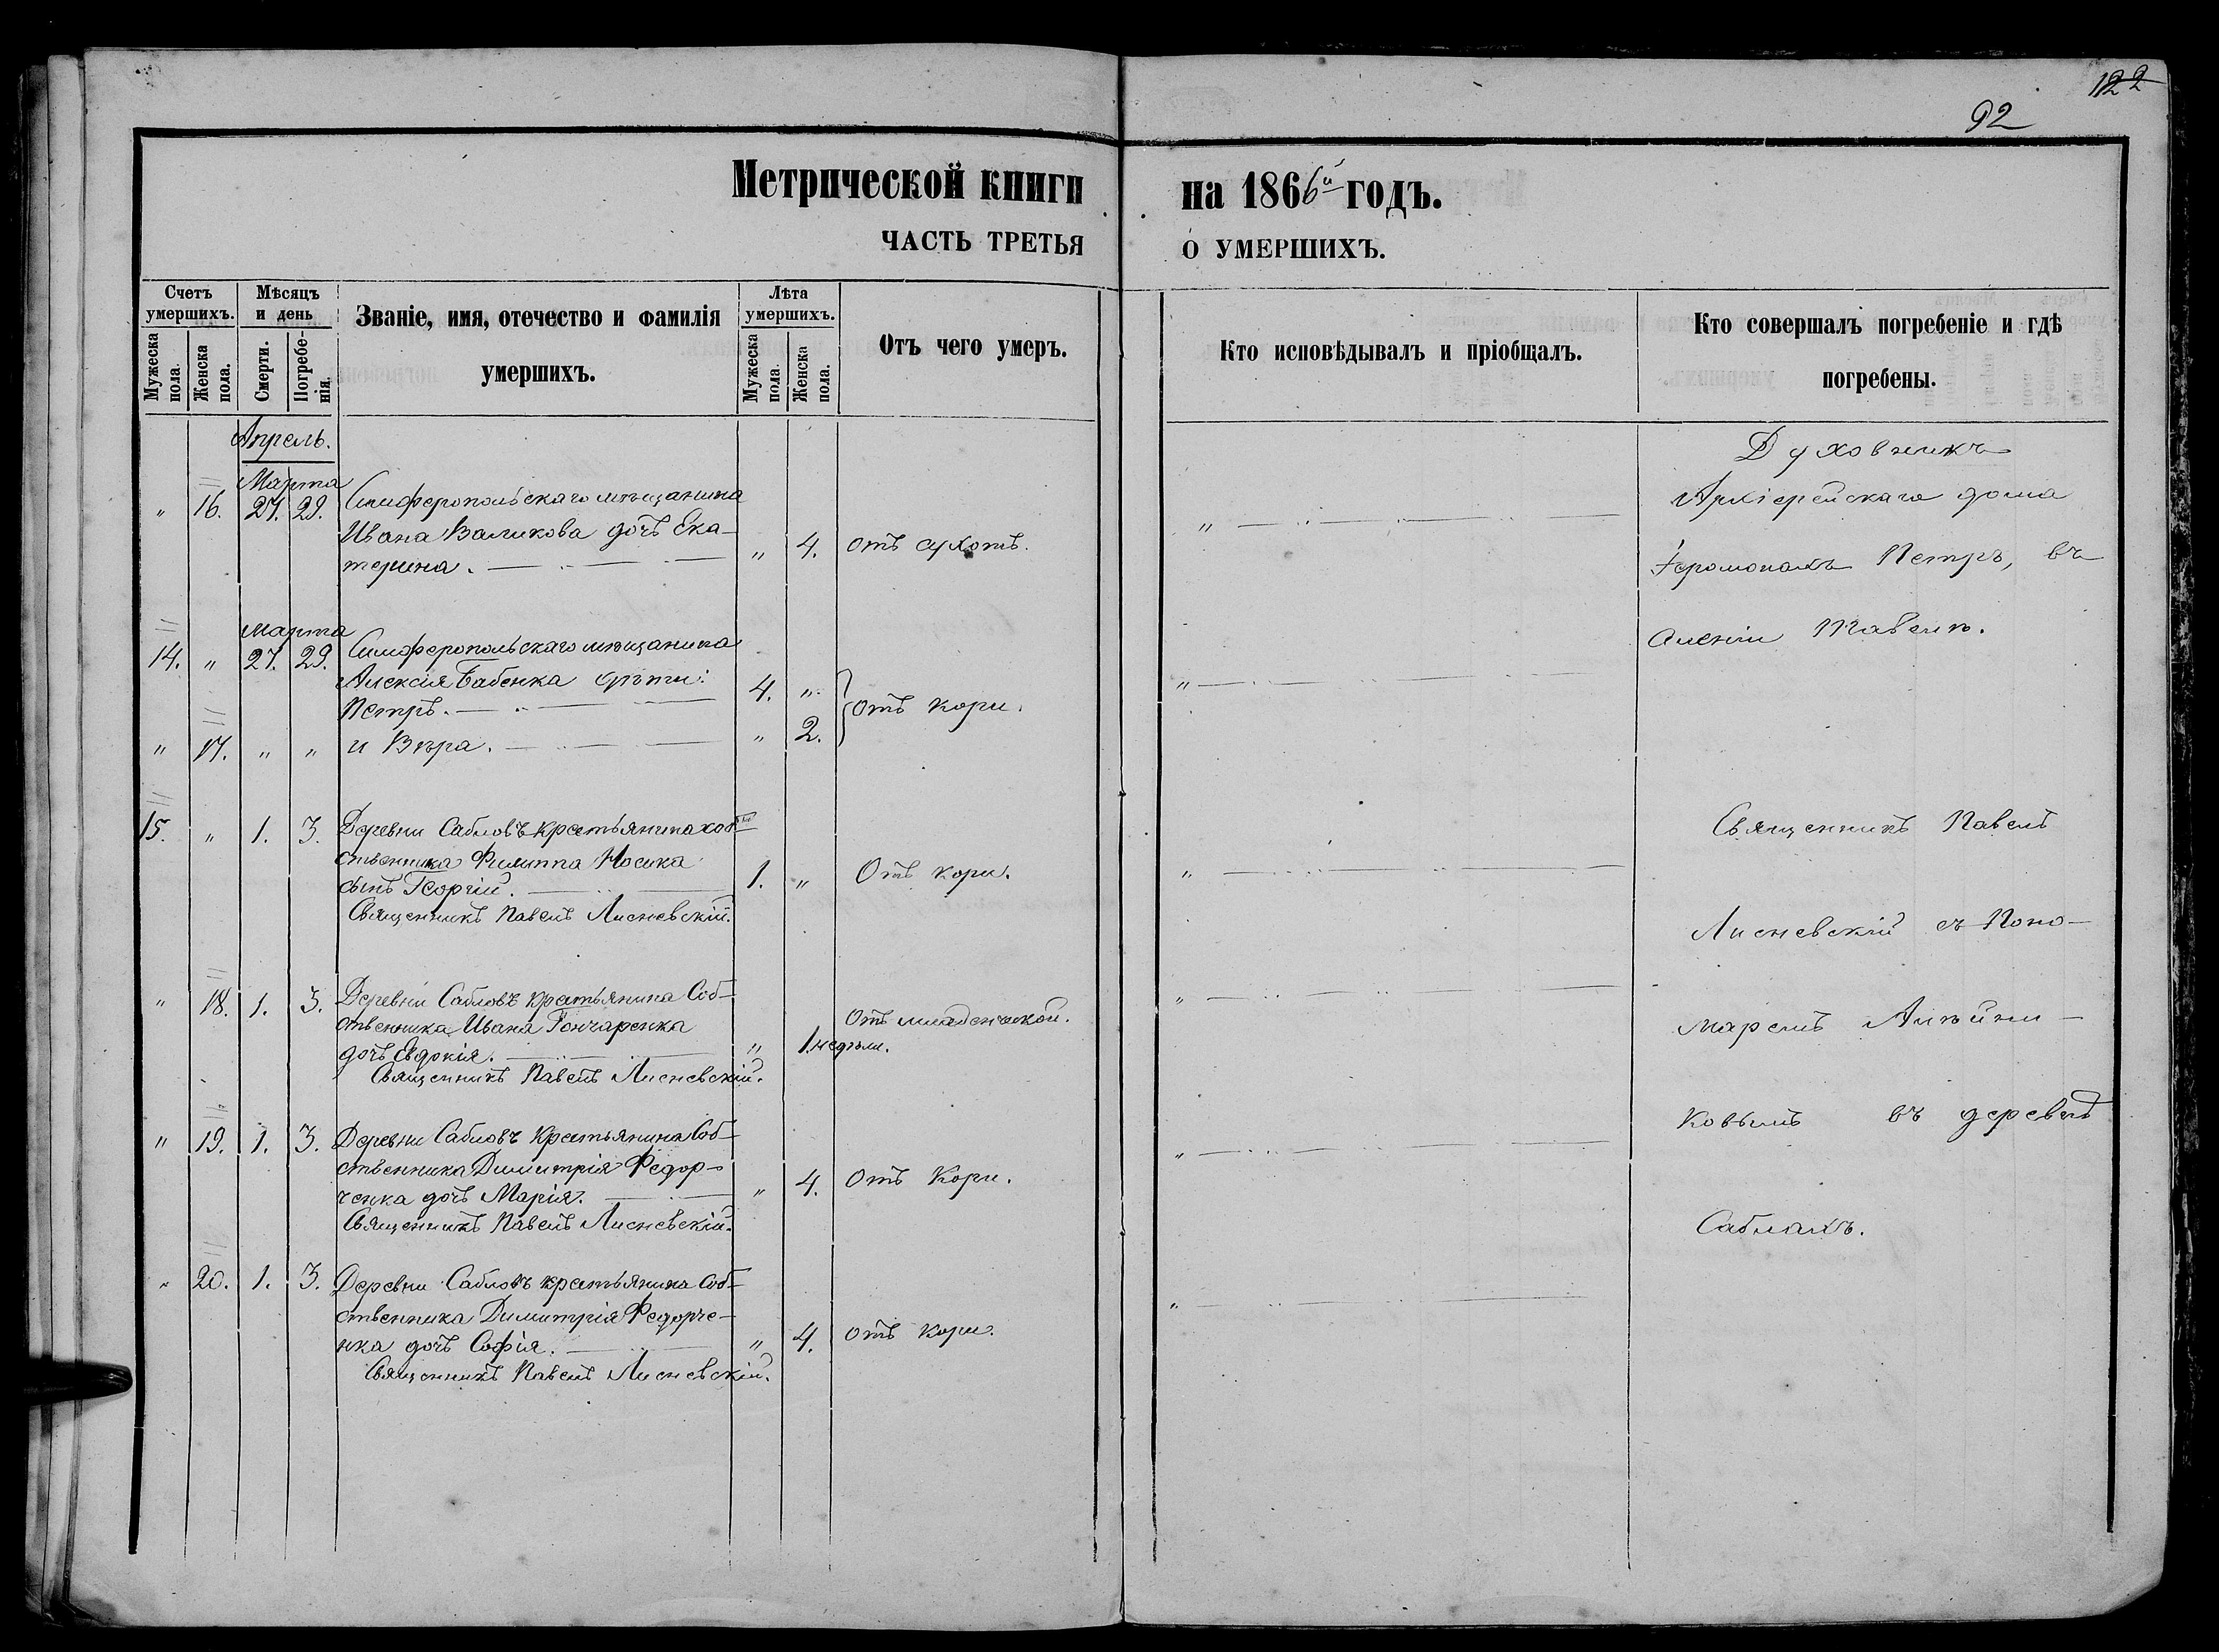 122
92
Метрической книги на 1866й годъ.
ЧАСТЬ ТРЕТЬЯ О УМЕРШИХЪ.
Счетъ умершихъ.
Мужеска пола.
Женска пола.
Мѣсяцъ и день
Смерти.
Погребенія.
Званіе, имя, отечество и фамилія умершихъ.
Лѣта умершихъ.
Мужеска пола.
Женска пола.
Отъ чего умеръ.
Кто исповѣдывалъ и пріобщалъ.
Кто совершалъ погребеніе и гдѣ погребены.
Апрель.
Марта
„ 16. 27. 29. Симферопольскаго мѣщанина
Ивана Валикова дочь Ека-
терина. „ 4. отъ сухотъ.
Духовникъ
Архіерейскаго дома
Іеромонахъ Петръ, въ
Марта
14. „ 27. 29. Симферопольскаго мѣщанина
Алексія Бабенка дѣти:
Петръ. 4. „
„ 17. „ „ и Вѣра. „ 2.
отъ кори.
15. „ 1. 3. Деревни Сабловъ крестьянина соб-
ственника Филиппа Носика
сынъ Георгій. 1. „ Отъ кори.
Священникъ Павелъ Лисневскій.
Священникъ Павелъ
Лисневскій съ Поно-
„ 18. 1. 3. Деревни Сабловъ крестьянина Соб-
ственника Ивана Гончаренка
дочь Евдокія. „ 1. недѣли. Отъ младенческой.
Священникъ Павелъ Лисневскій.
маремъ
„ 19. 1. 3. Деревни Сабловъ Крестьянина Соб-
ственника Димитрія Федор-
ченка дочь Марія. „ 4. Отъ Кори.
Священникъ Павелъ Лисневскій.
ковымъ въ деревнѣ
Саблахъ.
„ 20. 1. 3. Деревни Сабловъ крестьянина Соб-
ственника Димитрія Федорче-
нка дочь Софія. „ 4. отъ кори.
Священникъ Павелъ Лисневскій.